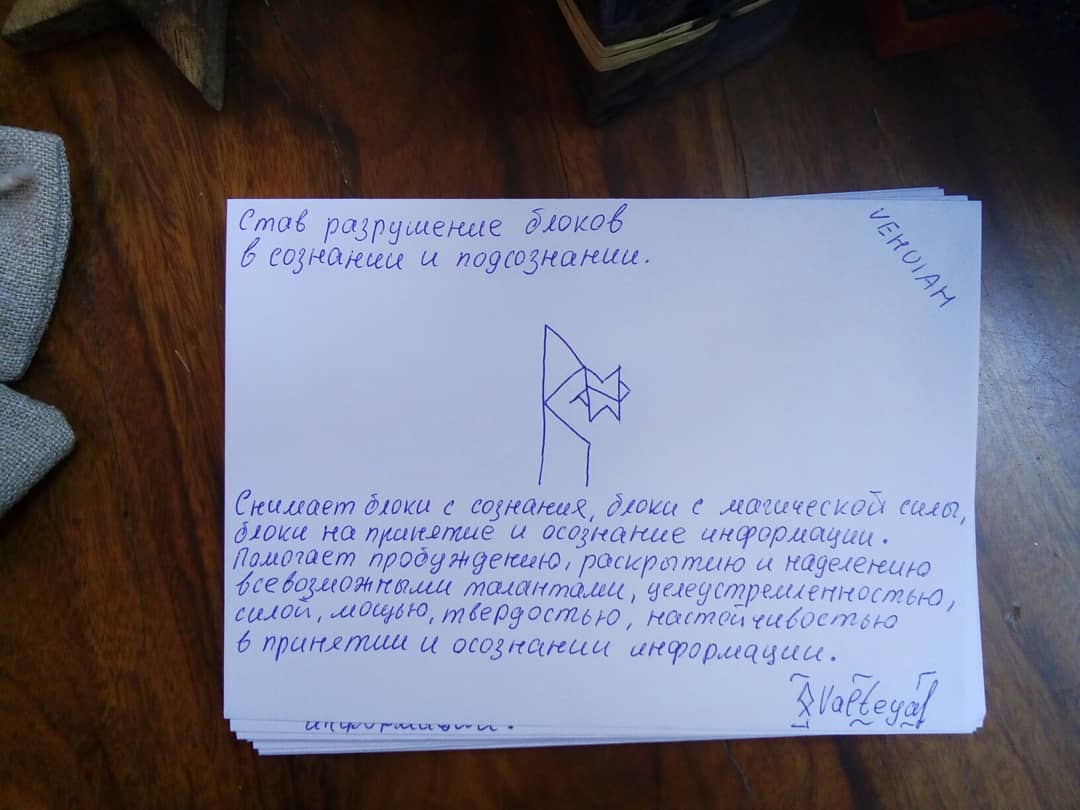 Став разрушение блоков
в сознании и подсознании.
VEHUIAH
Снимает блоки с сознания, блоки с магической силы,
блоки на принятие и осознание информации.
Помогает пробуждению, раскрытию и наделению
всевозможными талантами, целеустремленностью,
силой, мощью, твердостью, настойчивостью
в принятии и осознании информации.
Valteyaf
информации.